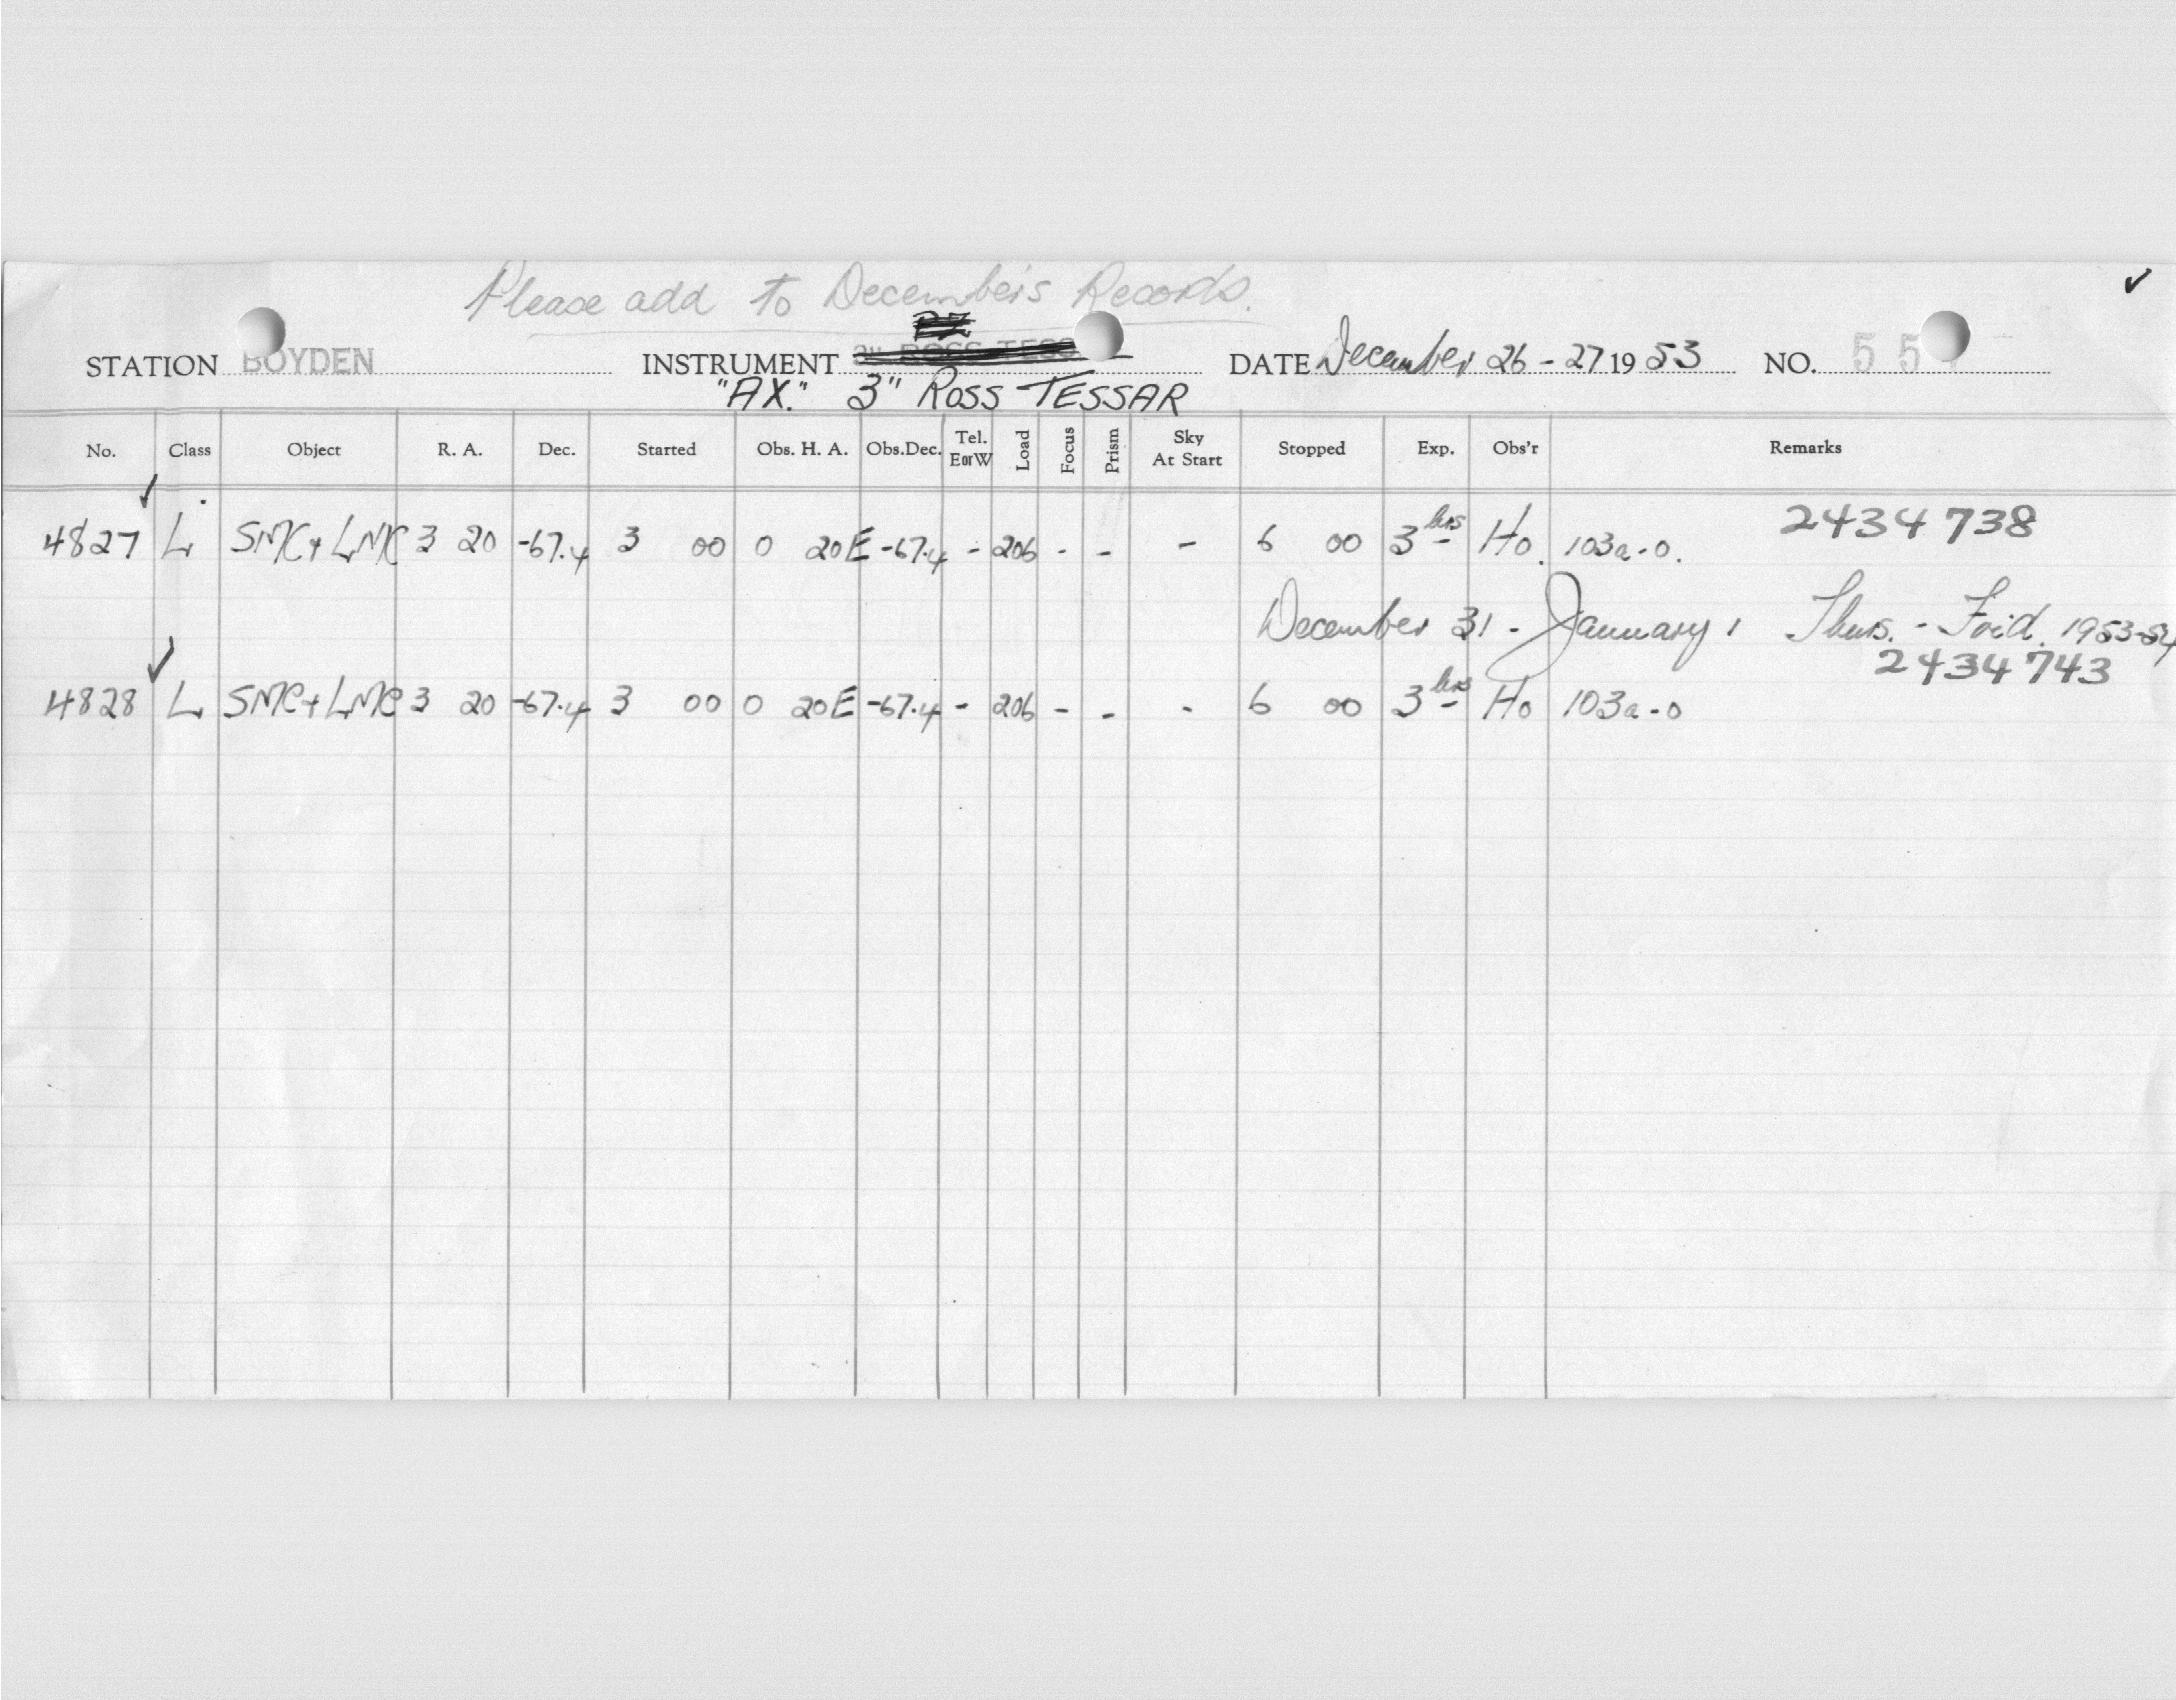 Please add to December's Records.
STATION BOYDEN INSTRUMENT 3" ROSS TESS DATE December 26 - 27 1953 NO. 55
"AX." 3" ROSS TESSAR
No. Class Object R. A. Dec. Started Obs. H. A. Obs.Dec. Tel. E or W Load Focus Prism Sky At Start Stopped Exp. Obs'r Remarks
4827 L SMC+LMC 3 20 -67.4 3 00 0 20E -67.4 - 206 - - - 6 00 3 hrs Ho. 103a-o. 2434 738
December 31 - January 1 Thurs. - Frid. 1953-54
2434 743
4828 L SMC+LMC 3 20 -67.4 3 00 0 20E -67.4 - 206 - - - 6 00 3 hrs Ho 103a-o